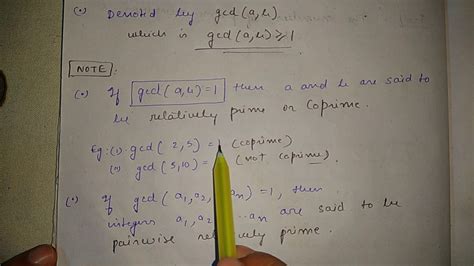 (•) Denoted by gcd(a,b)
which is gcd(a,b) ≥ 1
NOTE:
(•) If gcd(a,b)=1 then a and b are said to
be relatively prime or Coprime.
Eg: (i). gcd(2,5) = 1 (coprime)
(ii) gcd(5,10) = (not coprime)
(•) If gcd(a₁,a₂, aₙ) = 1, then
integers a₁,a₂ ..aₙ are said to be
pairwise relatively prime.